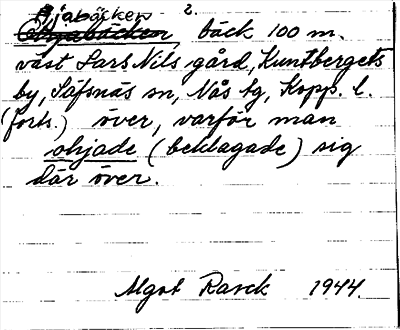 2.
Ojabäcken, bäck 100 m.
väst Lars Nils gård, Kuntbergets
by, Säfsnäs sn, Nås tg, Kopp. l.
(forts.) över, varför man
ohjade (beklagade) sig
där över.
Algot Rarck 1944.